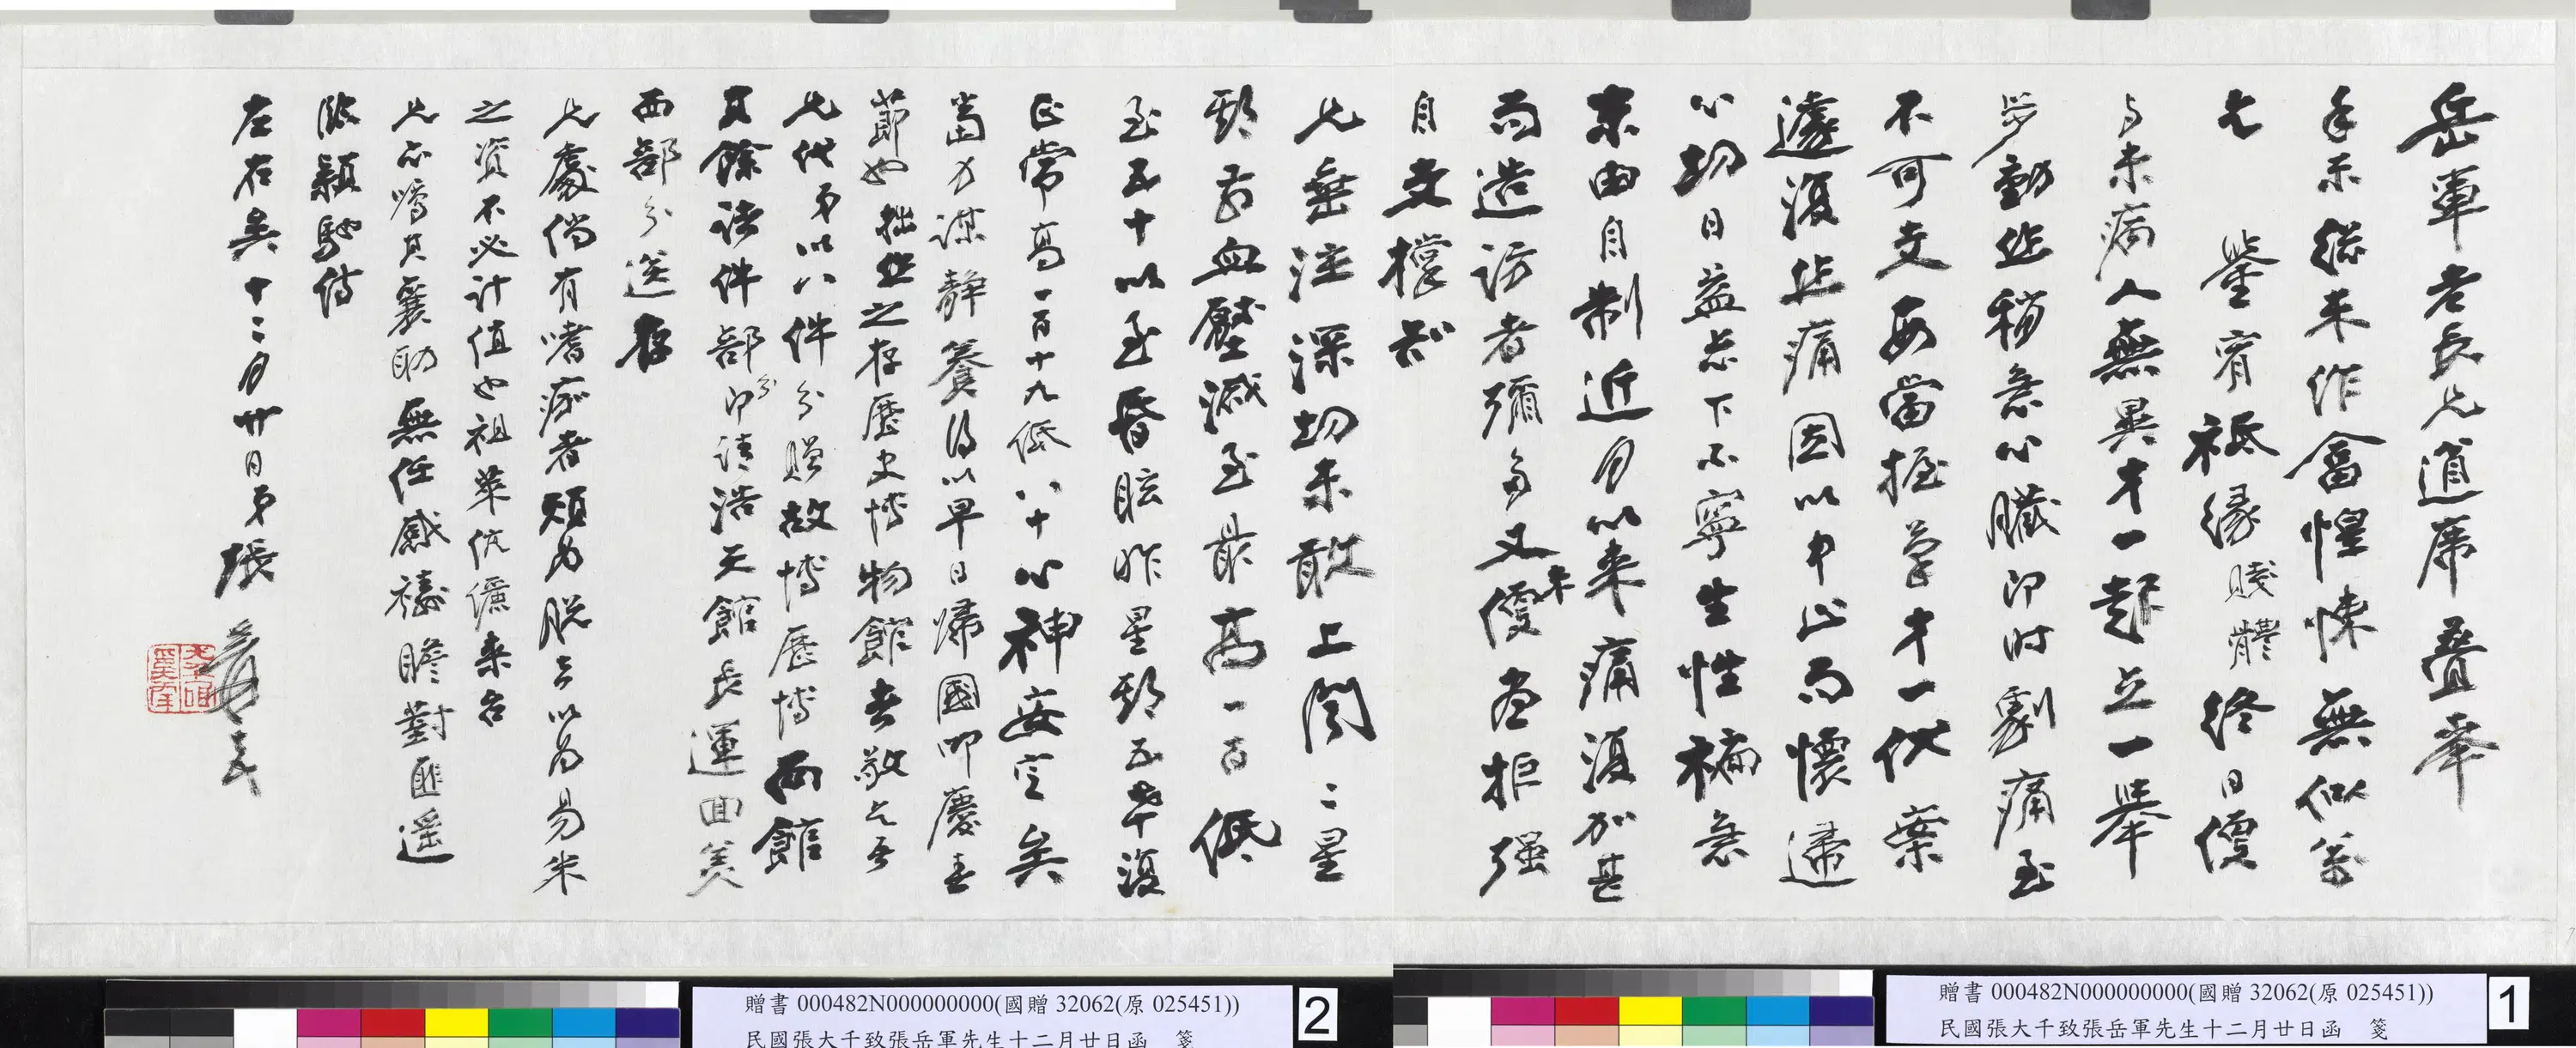 岳軍老長兄道席疊奉
手示稽未作畣惶悚無似萬
乞　鑒宥祗緣賤體終日偃
與未病人無異才一起立一舉
步動作稍急心臟即時劇痛至
不可支要當握管才一伏案
遽復作痛因以中止而懷歸
心切日益忐下不寧生性褊急
末由自制近月以來痛復加甚
而造訪者彌多又未便盡拒強
自支撐知
兄垂注深切未敢上聞二星
期前血壓減至最高一百低
至五十以至昏眩昨星期五乃復
正常高一百十九低八十心神安定矣
當力謀靜養得以早日歸國叩慶春
節也拙作之存歷史博物館者敬乞吾
兄代弟以八件分贈故博歷博兩館
其餘諸件部分即請浩天館長運回美
西部分送存
兄處倘有嗜痂者煩為脫去以為易米
之資不必計值也祖萊伉儷來台
兄亦囑其襄助無任感禱瞻對匪遙
臨穎馳侍
左右矣十二月廿日弟張爰
贈書 000482N000000000(國贈 32062(原 025451))
民國張大千致張岳軍先生十二月廿日函　箋
1
贈書 000482N000000000(國贈 32062(原 025451))
民國張大千致張岳軍先生十二月廿日函　箋
2